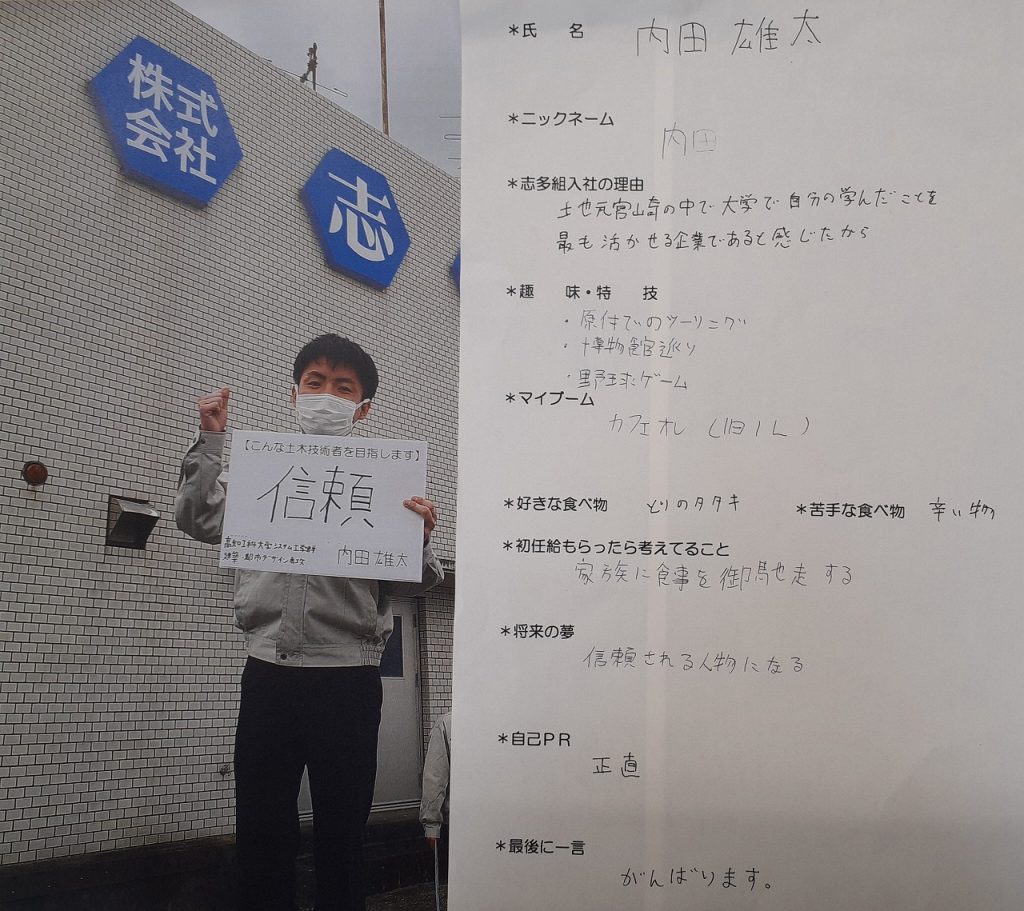 株式
会社
志
【こんな土木技術者を目指します】
信頼
高知工科大学システム工学群
建築・都市デザイン専攻
内田 雄太
*氏 名 内田 雄太
*ニックネーム
内田
*志多組入社の理由
土地元宮崎の中で大学で自分の学んだことを
最も活かせる企業であると感じたから
*趣 味・特 技
・原付でのツーリング
・博物館巡り
・野球ゲーム
*マイブーム
カフェオレ (1日1L)
*好きな食べ物 とりのタタキ *苦手な食べ物 辛い物
*初任給もらったら考えてること
家族に食事を御馳走する
*将来の夢
信頼される人物になる
*自己PR
正直
*最後に一言
がんばります。